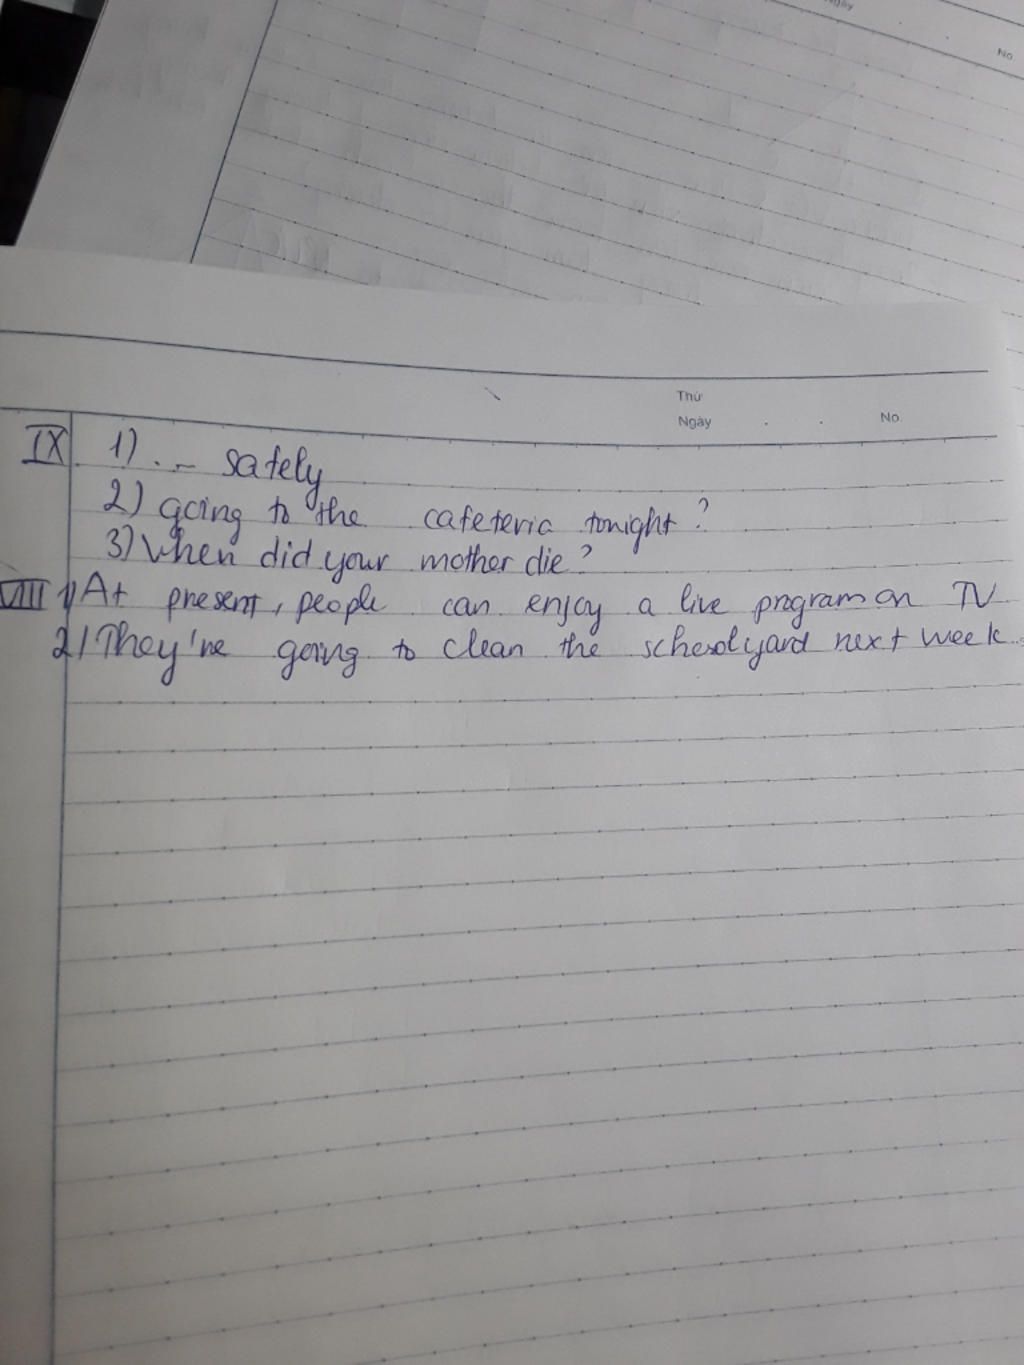 Ngày
No
Thứ
Ngày . . No
IX 1) .. - safely
2) going to the cafeteria tonight?
3) When did your mother die?
VIII 1) At present, people can enjoy a live program on TV
2) They're going to clean the schoolyard next week.